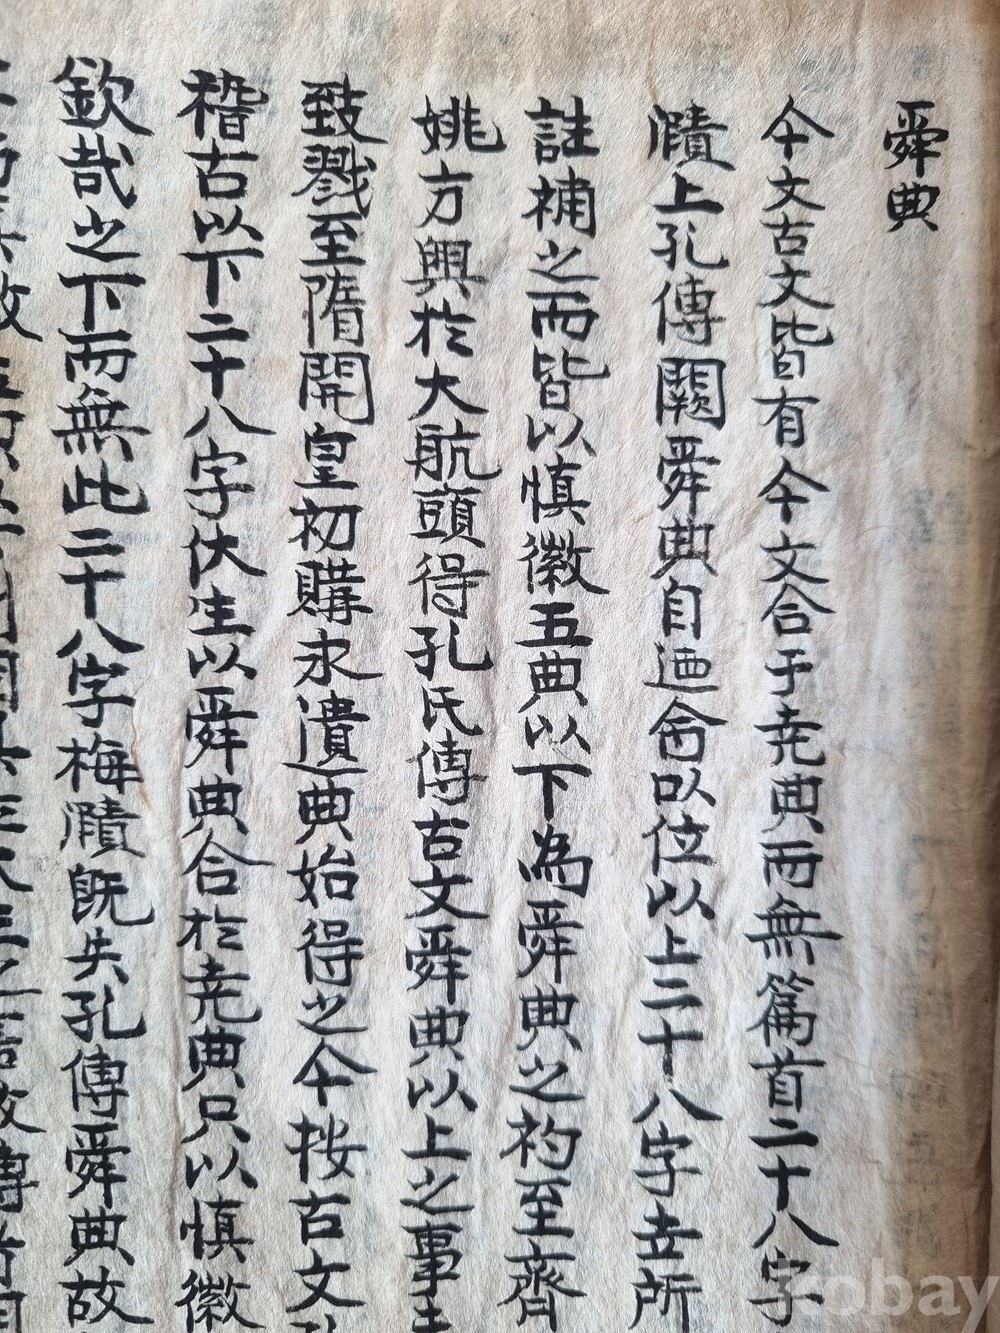 舜典
今文古文皆有今文合于堯典而無篇首二十八字
賾上孔傳闕舜典自廼命以位以上二十八字世所
註補之而皆以愼徽五典以下為舜典之初至齊
姚方興於大航頭得孔氏傳古文舜典以上之事
致戮至隋開皇初購求遺典始得之今按古文
稽古以下二十八字伏生以舜典合於堯典只以愼徽
欽哉之下而無此二十八字梅賾旣失孔傳舜典故
kobay